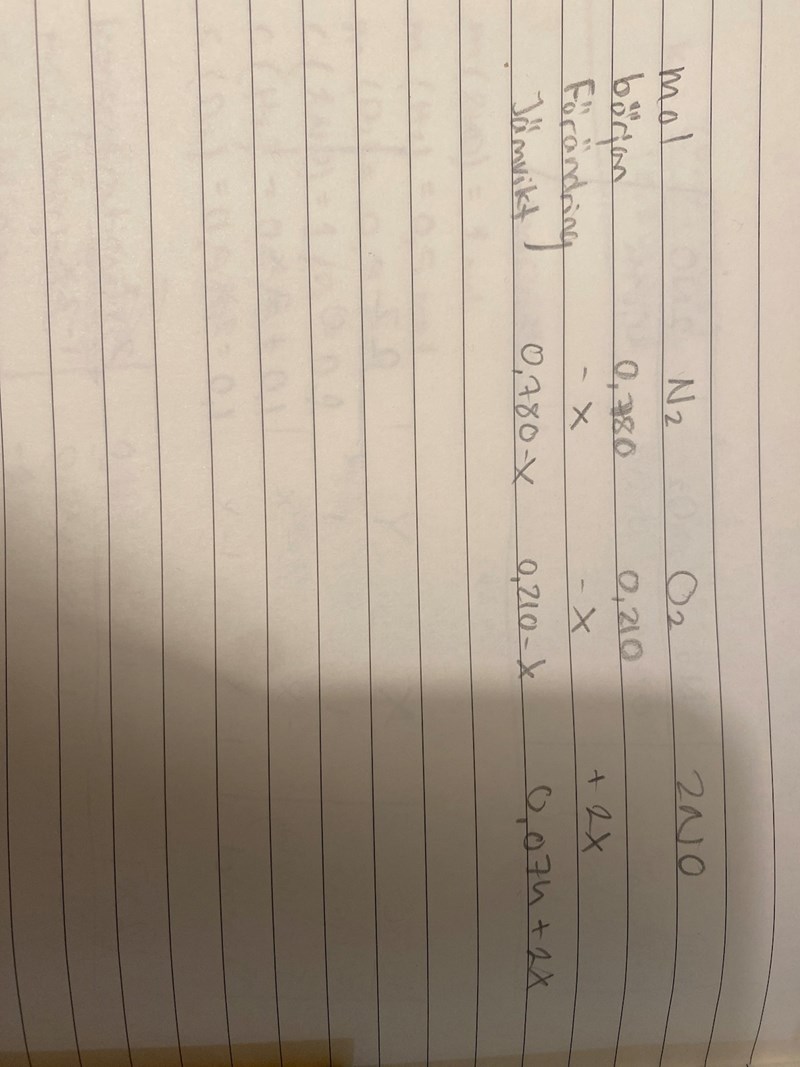 mol N2 O2 2NO
början 0,780 0,210
Förändring -x -x +2x
Jämvikt) 0,780-x 0,210-x 0,074+2x